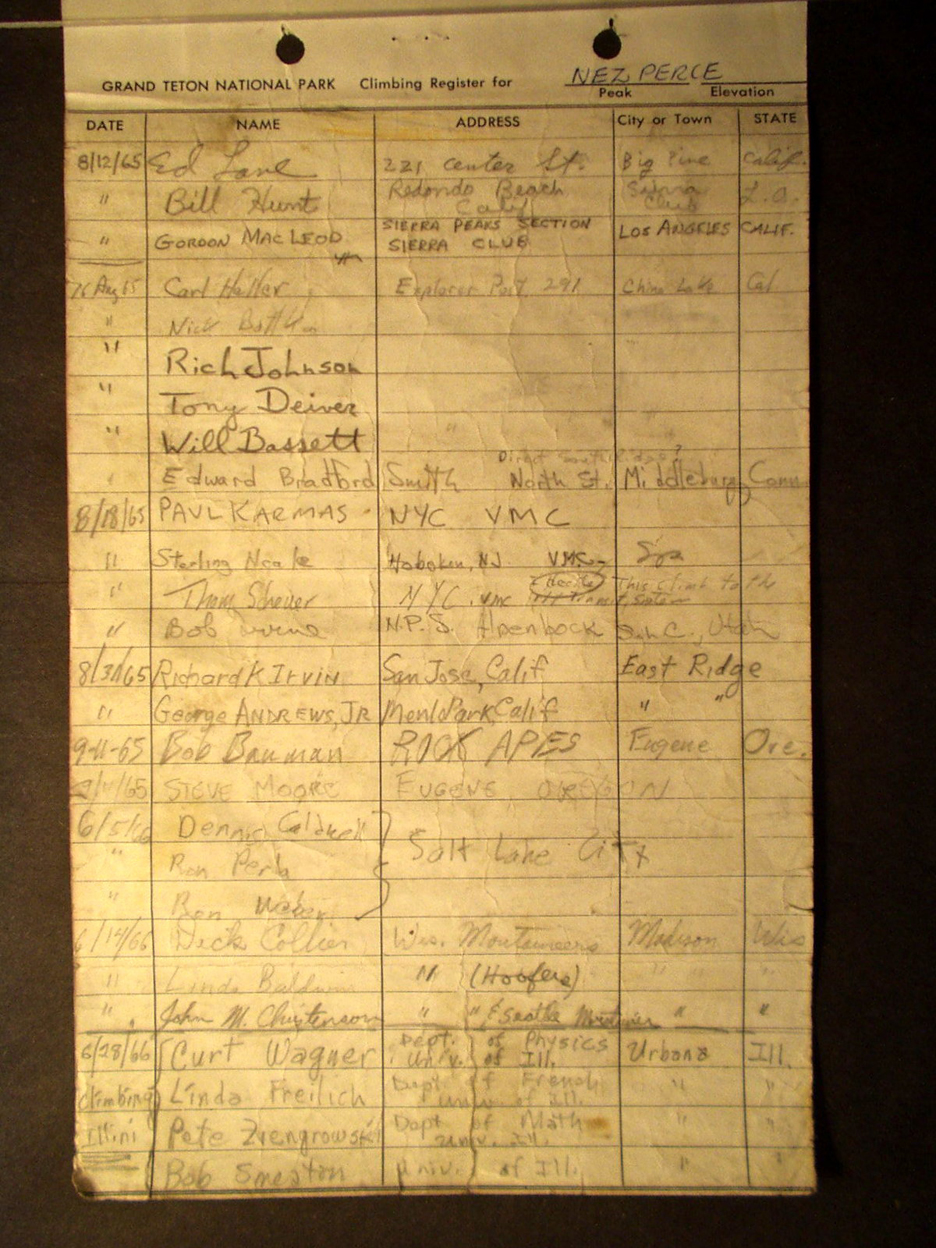 NEZ PERCE
GRAND TETON NATIONAL PARK Climbing Register for
Peak Elevation
DATE NAME ADDRESS City or Town STATE
8/12/65 Ed Lane 221 Center St. Big Pine Calif.
" Bill Hunt Redondo Beach Calif Sierra Club L.A.
" GORDON MACLEOD SIERRA PEAKS SECTION SIERRA CLUB LOS ANGELES CALIF.
Aug 65 Carl Heller Explorer Post 291 China Lake Cal
" Nick
" Rich Johnson
" Tony Deiver
" Will Bassett "
Direct South Ridge?
" Edward Bradford Smith North St. Middlebury, Conn
8/18/65 PAUL KARMAS NYC VMC
" Sterling Neale Hoboken, NJ VMC
" Thom Scheuer NYC. VMC This climb to the
transit system
" Bob Irvine N.P.S. Alpenbock S.L.C., Utah
8/31/65 Richard K Irvin San Jose, Calif East Ridge
" George ANDREWS, JR Menlo Park, Calif " "
9-4-65 Bob Bauman ROCK APES Eugene Ore.
9/4/65 STEVE MOORE EUGENE OREGON
6/5/66 Dennis Caldwell
Salt Lake City
" Ron Perla
" Ron Weber
6/14/66 Dick Collier Wis. Mountaineers Madison Wis
" Linda Baldwin " (Hoofers) " "
" John M. Christenson " " & Seattle Mountaineer " "
6/28/66 Curt Wagner Dept. of Physics Univ. of Ill. Urbana Ill.
climbing Linda Freilich Dept of French Univ. of Ill. " "
Illini Pete Zvengrowski Dept of Math Univ. Ill. " "
Bob Smeaton Univ. of Ill. " "